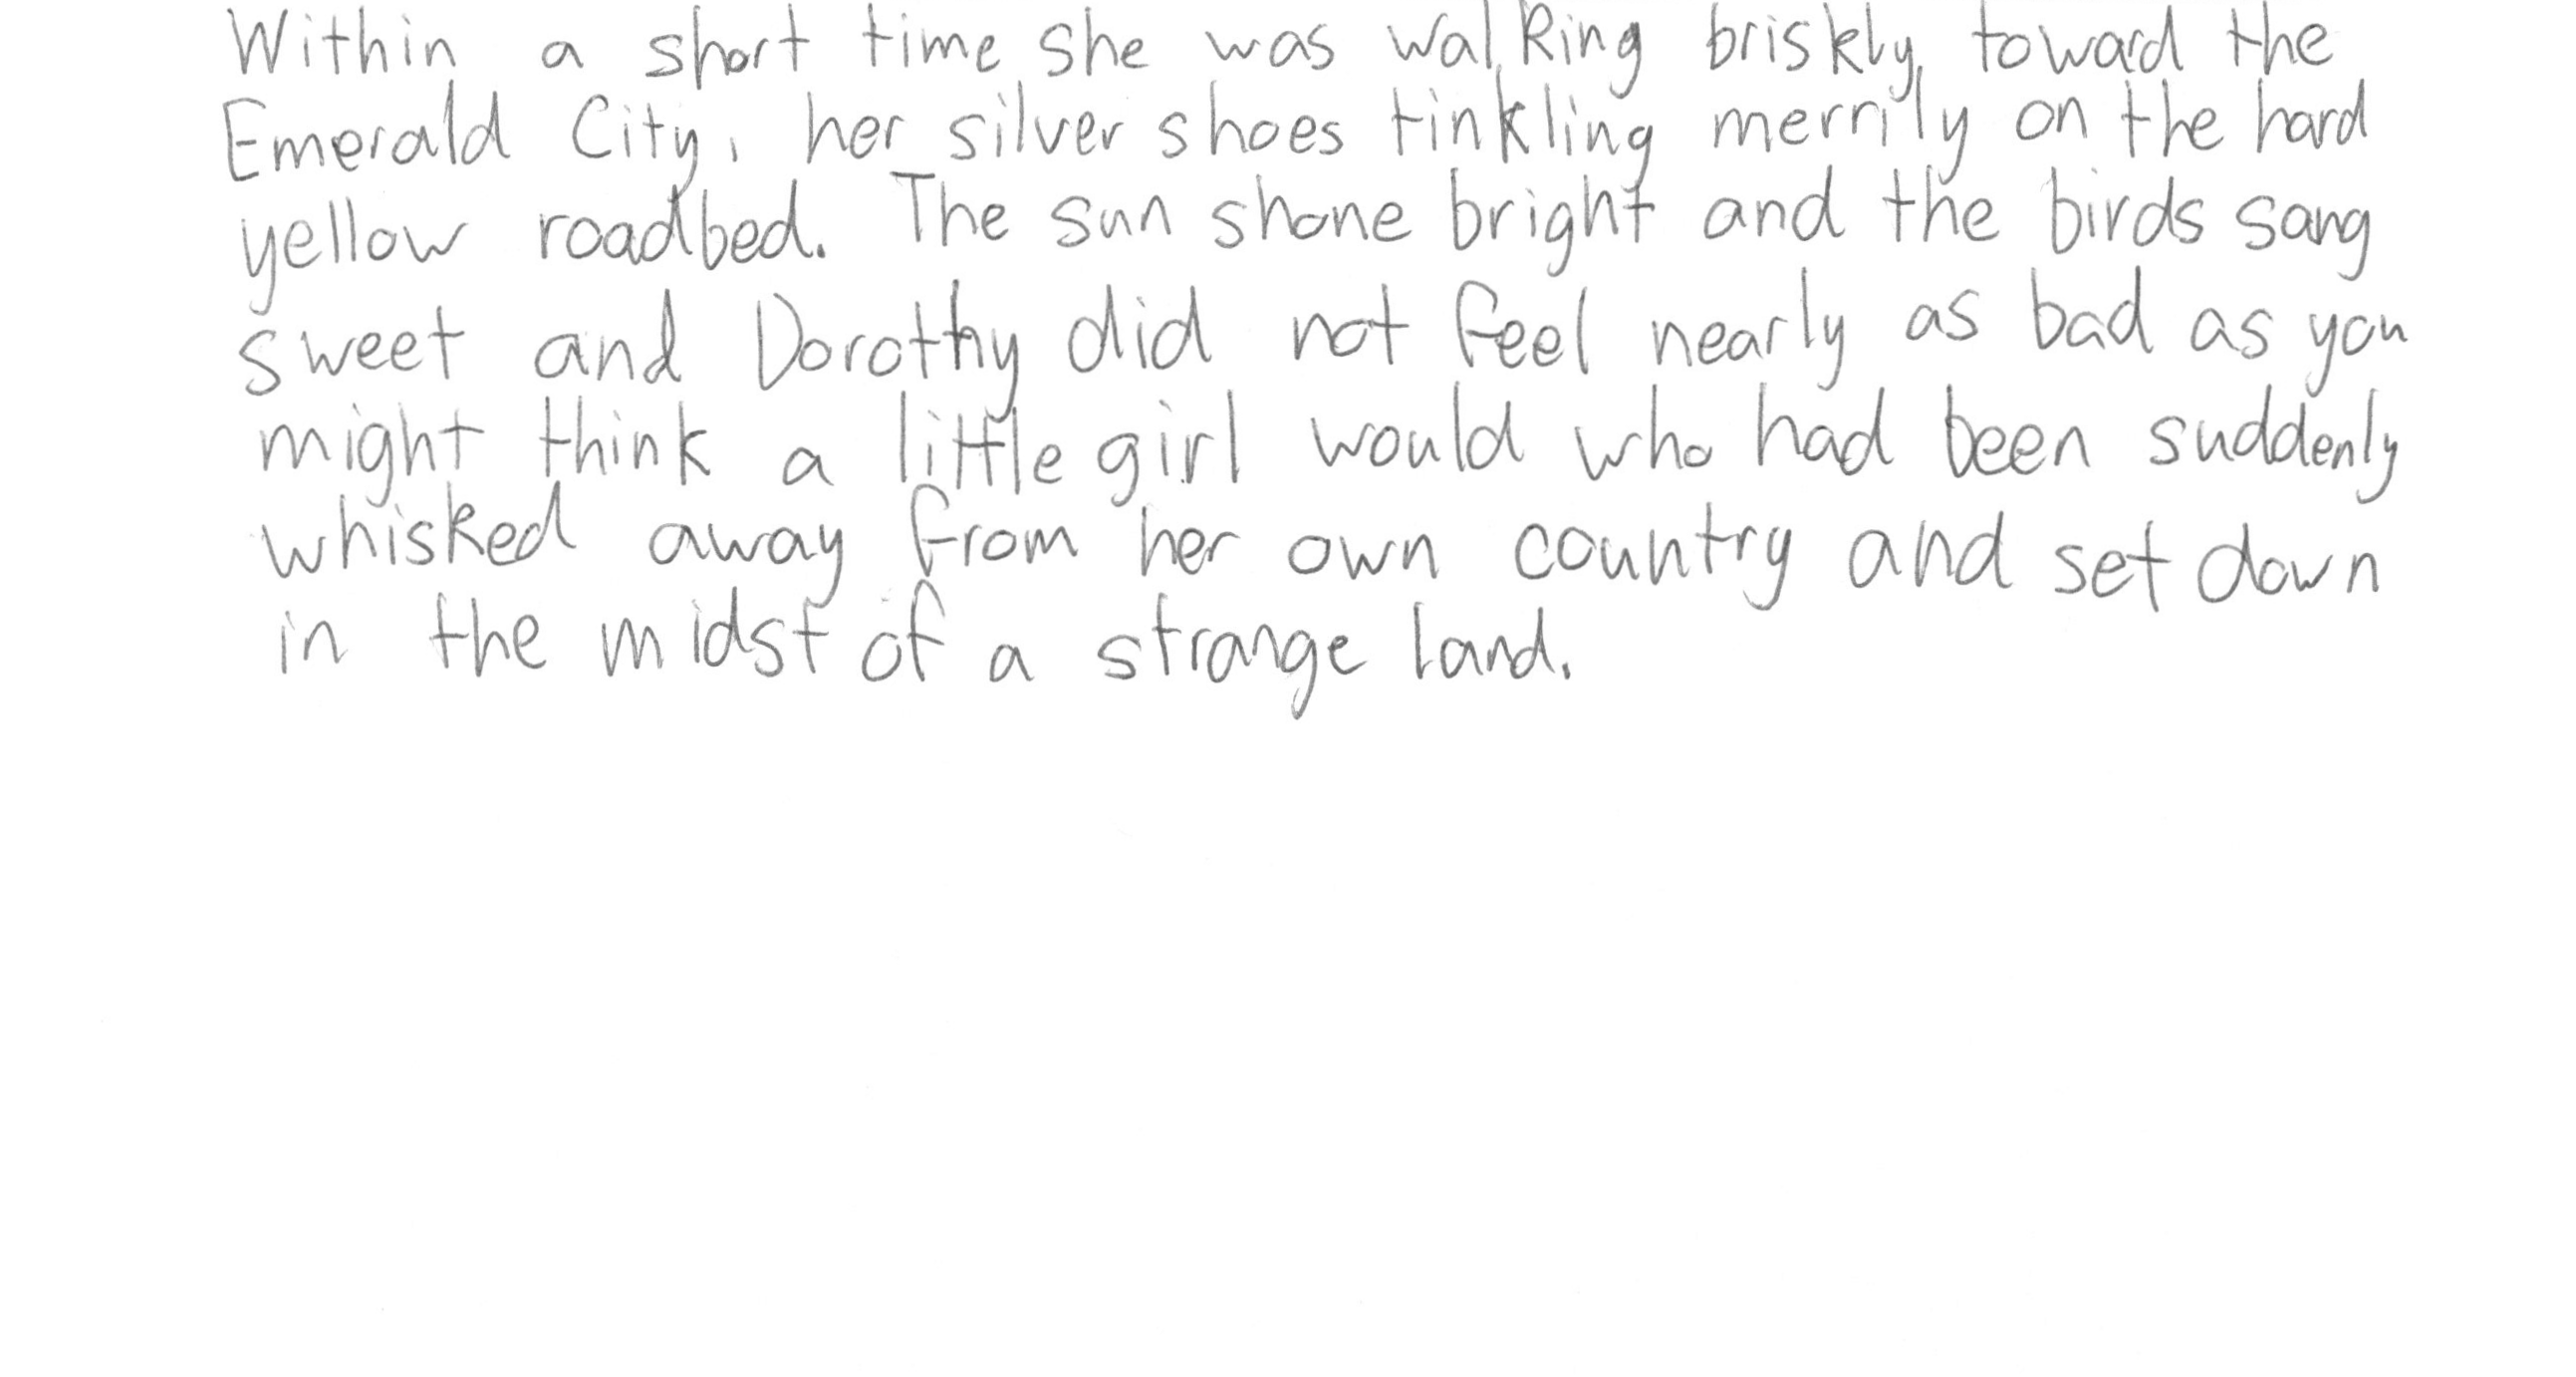 Within a short time she was walking briskly toward the
Emerald City, her silver shoes tinkling merrily on the hard
yellow roadbed. The sun shone bright and the birds sang
sweet and Dorothy did not feel nearly as bad as you
might think a little girl would who had been suddenly
whisked away from her own country and set down
in the midst of a strange land.